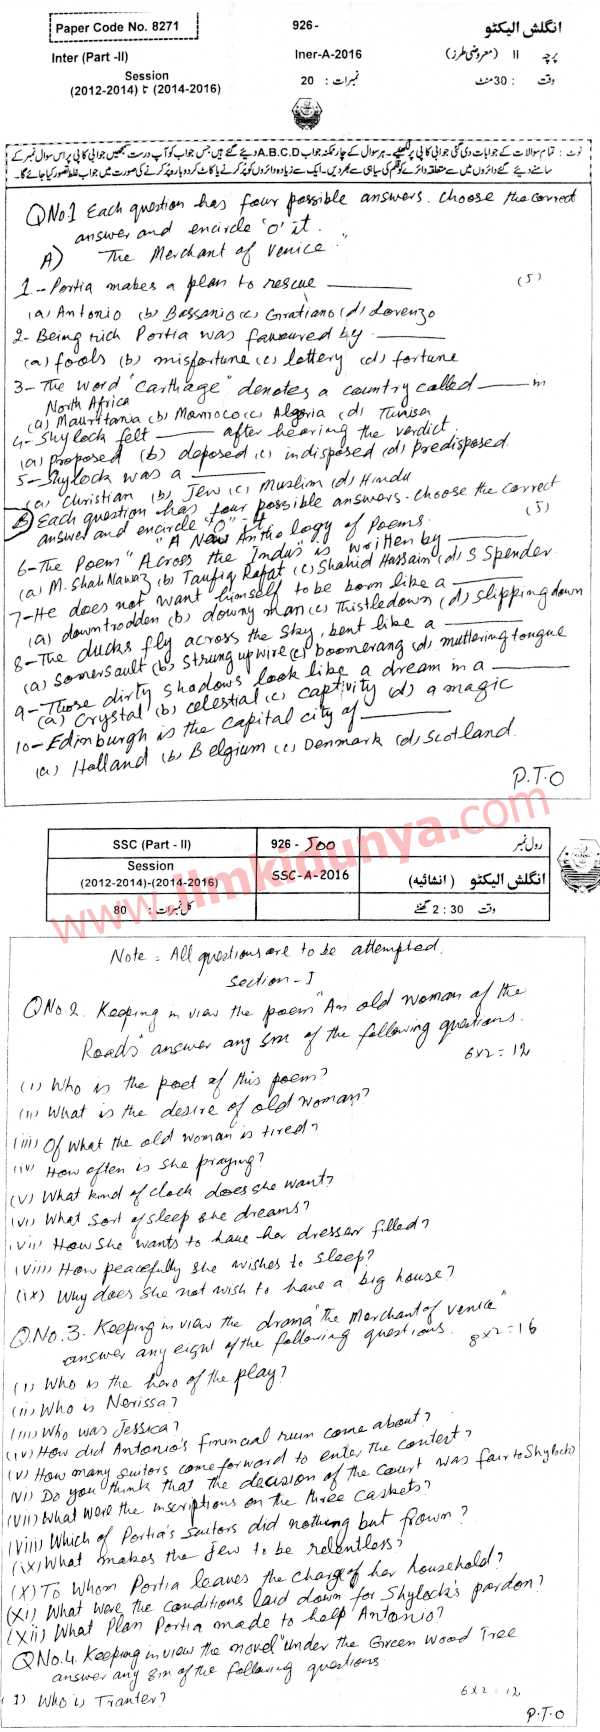 Paper Code No. 8271
926-
انگلش الیکٹو
Inter (Part -II)
Iner-A-2016
پرچہ II (معروضی طرز)
Session
(2012-2014) تا (2014-2016)
نمبرات : 20
وقت : 30 منٹ
نوٹ : تمام سوالات کے جوابات دی گئی جوابی کاپی پر لکھیے۔ ہر سوال کے چار ممکنہ جواب A.B.C.D دیئے گئے ہیں جس جواب کو آپ درست سمجھیں جوابی کاپی پر اس سوال نمبر کے
سامنے دیئے گئے دائروں میں سے متعلقہ دائرے کو قلم کی سیاہی سے بھر دیں۔ ایک سے زیادہ دائروں کو پُر کرنے یا کاٹ کر دوبارہ پُر کرنے کی صورت میں جواب غلط تصور کیا جائے گا۔
QNo.1 Each question has four possible answers. Choose the correct
answer and encircle 'O' it.
A) The Merchant of Venice"
1- Portia makes a plan to rescue ________ (5)
(a) Antonio (b) Bassanio (c) Gratiano (d) Lorenzo
2- Being rich Portia was favoured by ________
(a) fools (b) misfortune (c) lottery (d) fortune
3- The word "Carthage" denotes a country called ____ in
North Africa
(a) Mauritania (b) Morroco (c) Algeria (d) Tunisa
4- Shylock felt ____ after hearing the verdict.
(a) proposed (b) deposed (c) indisposed (d) predisposed
5- Shylock was a ________
(a) Christian (b) Jew (c) Muslim (d) Hindu
B) Each question has four possible answers. Choose the correct
answer and encircle "O" it. (5)
"A New Anthology of Poems.
6- The Poem "Across the Indus" is written by ________
(a) M. Shah Nawaz (b) Taufiq Rafat (c) Shahid Hassain (d) S Spender
7- He does not want himself to be born like a ________
(a) downtrodden (b) downy man (c) Thistledown (d) slipping down
8- The ducks fly across the sky, bent like a ________
(a) Somersault (b) Strung up wire (c) boomerang (d) muttering tongue
9- Those dirty shadows look like a dream in a ________
(a) Crystal (b) celestial (c) captivity (d) a magic
10- Edinburgh is the capital city of ________
(a) Holland (b) Belgium (c) Denmark (d) Scotland.
P.T.O
www.ilmkidunya.com
SSC (Part - II)
926 - 500
رول نمبر
Session
(2012-2014)-(2014-2016)
SSC-A-2016
انگلش الیکٹو ( انشائیہ )
کل نمبرات : 80
وقت 2 : 30 گھنٹے
Note : All questions are to be attempted.
Section - I
QNo 2. Keeping in view the poem "An old woman of the
Roads" answer any six of the following questions.
6x2=12
(i) Who is the poet of this poem?
(ii) What is the desire of old woman?
(iii) Of what the old woman is tired?
(iv) How often is she praying?
(v) What kind of clock does she want?
(vi) What sort of sleep she dreams?
(vii) How she wants to have her dresser filled?
(viii) How peacefully she wishes to sleep?
(ix) Why does she not wish to have a big house?
Q.No.3. Keeping in view the drama "The Merchant of Venice"
answer any eight of the following questions. 8x2=16
(i) Who is the hero of the play?
(ii) Who is Nerissa?
(iii) Who was Jessica?
(iv) How did Antonio's financial ruin come about?
(v) How many suitors come forward to enter the contest?
(vi) Do you think that the decision of the Court was fair to Shylock?
(vii) What were the inscriptions on the three caskets?
(viii) Which of Portia's Suitors did nothing but frown?
(ix) What makes the Jew to be relentless?
(x) To Whom Portia leaves the charge of her household?
(xi) What were the conditions laid down for Shylock's pardon?
(xii) What Plan Portia made to help Antonio?
QNo.4. Keeping in view the novel "under the Green Wood Tree
answer any six of the following questions
6x2=12
I) Who is Tranter?
P.T.O